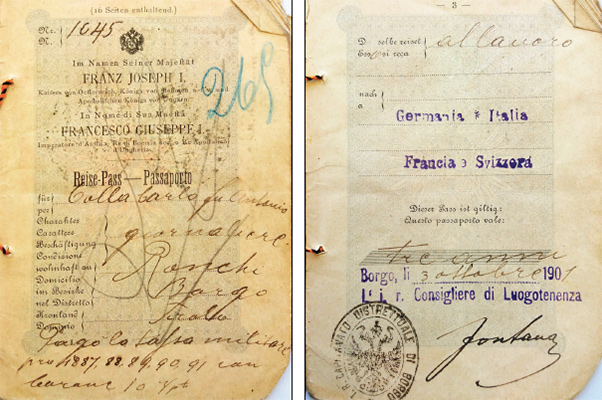 (16 Seiten enthaltend.)
Nr. 1645
N.
265
Im Namen Seiner Majestät
FRANZ JOSEPH I.
Kaisers von Oesterreich, Königs von Böhmen u. s. w. und
Apostolischen Königs von Ungarn.
In Nome di Sua Maestà
FRANCESCO GIUSEPPE I.
Imperatore d'Austria, Re di Boemia ecc. e Re Apostolico
d'Ungheria.
Reise-Pass — Passaporto
für
per Colla Carlo fu Antonio
Charakter
Carattere giornaliere
Beschäftigung
Condizione
wohnhaft zu Ronchi
Domicilio
im Bezirke Borgo
nel Distretto
Kronland Tirolo
Dominio
Pagò la tassa militare
pro 1887, 88, 89, 90, 91 con
— 3 —
D selbe reiset
Ess si reca al lavoro
nach
a
Germania e Italia
Francia e Svizzera
Dieser Pass ist giltig:
Questo passaporto vale:
tre anni
Borgo, li 3 ottobre 1901
L' i. r. Consigliere di Luogotenenza
I. R. CAPITANATO DISTRETTUALE DI BORGO
Fontana